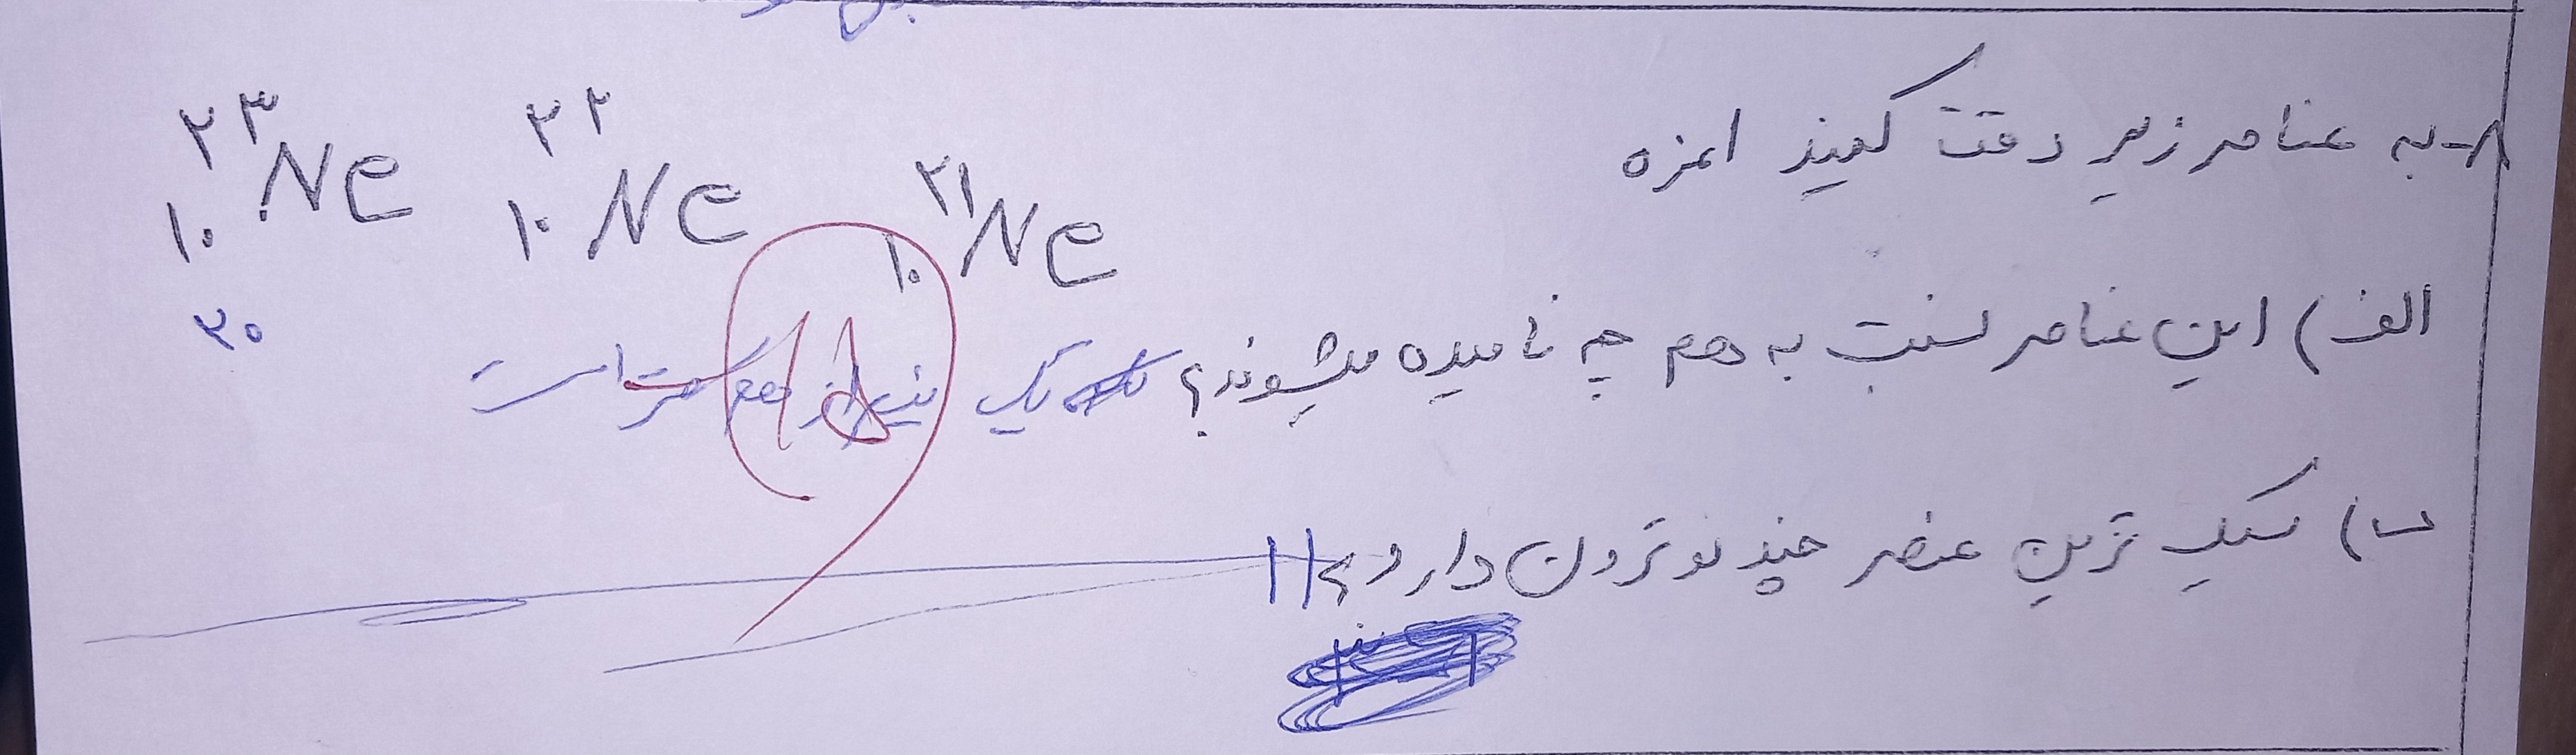 ۸-به عناصر زیر دقت کنید ۱نمره
۲۳ ۱۰ Ne ۲۲ ۱۰ Ne ۲۱ ۱۰ Ne
الف) این عناصر نسبت به هم چه نامیده میشوند؟ یک است
۲۰
ب) سبک ترین عنصر چند نوترون دارد؟ ۱۱